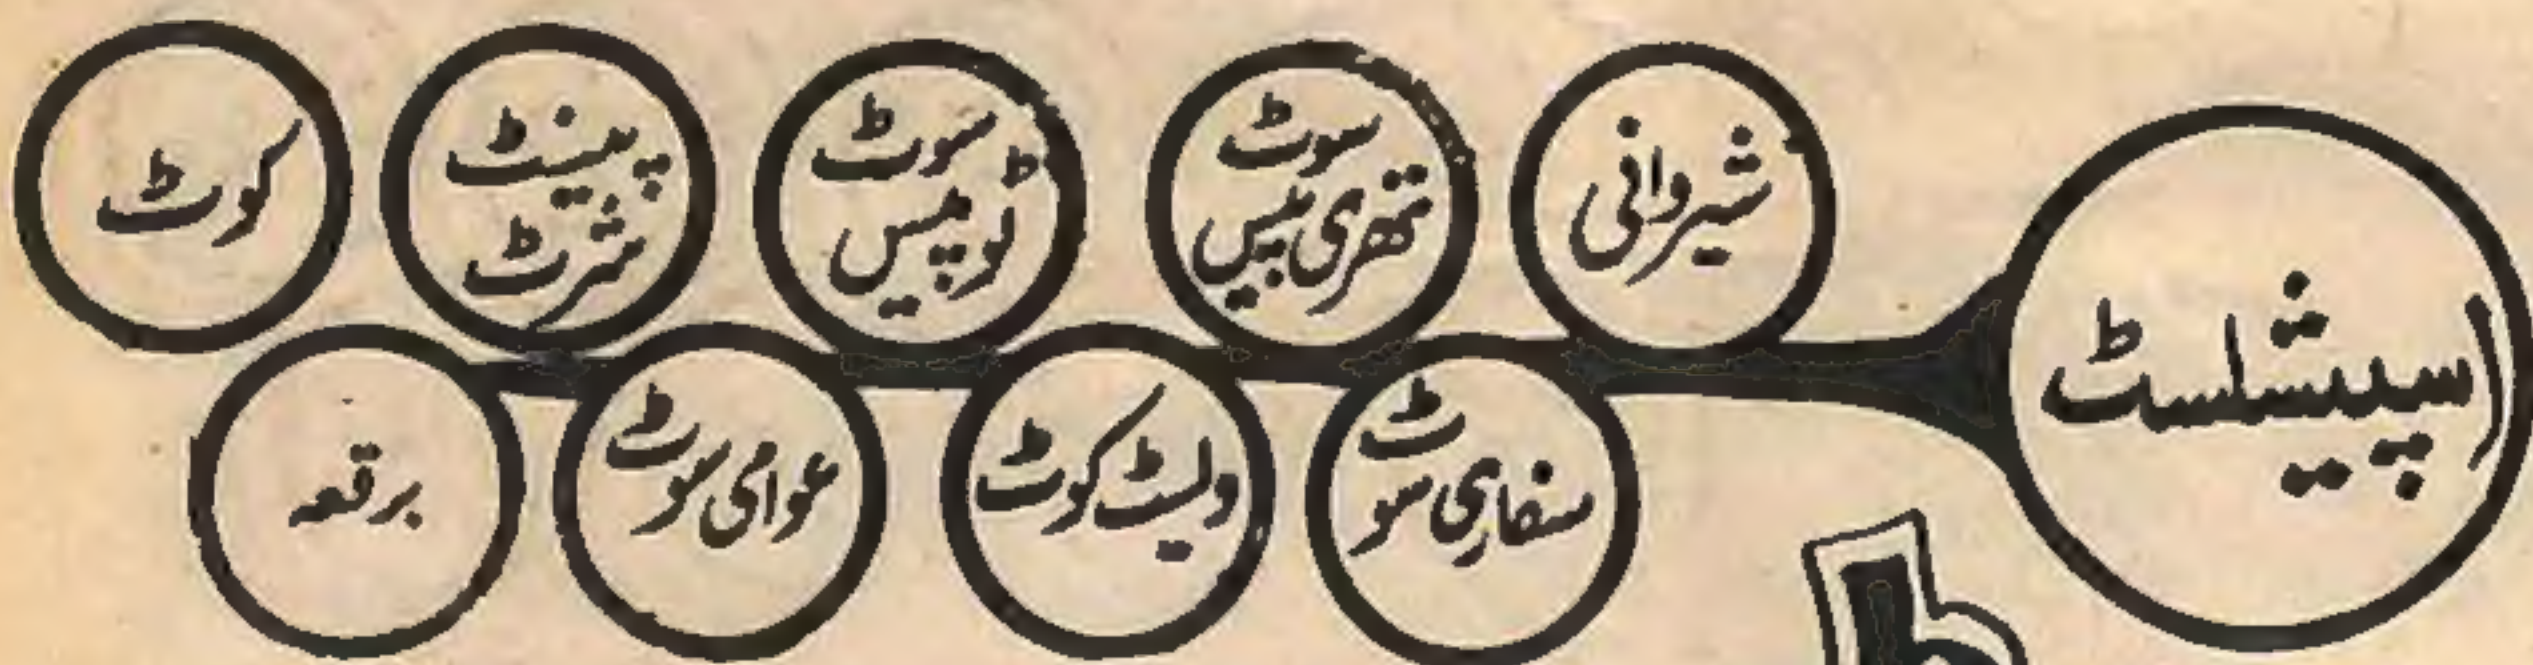 اسپیشلسٹ
شیروانی
سوٹ
تھری پیس
سوٹ
ٹو پیس
پینٹ
شرٹ
کوٹ
سفاری سوٹ
ویسٹ کوٹ
عوامی سوٹ
برقعہ